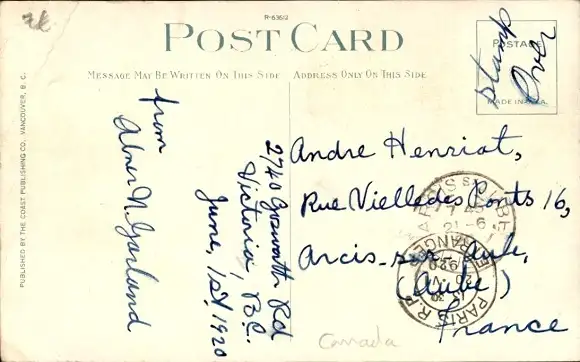 R-63612
POST CARD
MESSAGE MAY BE WRITTEN ON THIS SIDE
ADDRESS ONLY ON THIS SIDE
POSTAGE
MADE IN
PUBLISHED BY THE COAST PUBLISHING CO., VANCOUVER, B. C.
from
Abner N. Garland
2740 Gosworth Rd
Victoria, B.C.
June, 1st/1920
Andre Henriot,
Rue Vielledes Ponts 16,
Arcis-sur Aube,
(Aube)
France
PARIS R.P.
ETRANGER
Canada